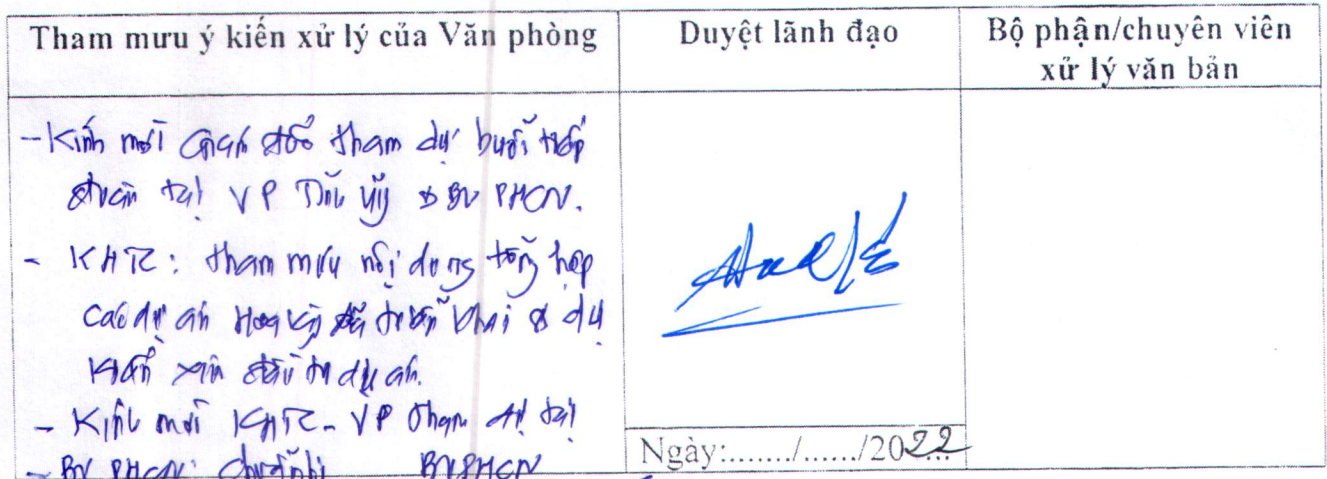 Tham mưu ý kiến xử lý của Văn phòng
Duyệt lãnh đạo
Bộ phận/chuyên viên
xử lý văn bản
- Kính mời tham dự buổi tiếp
đoàn tại VP Tỉnh ủy & BV PHCN.
- KHTC: tham mưu nội dung tổng hợp
các dự án Hoa Kỳ đã triển khai & dự
kiến xin đầu tư dự án.
- Kính mời KHTC - VP tham dự tại
BVPHCN
- BV PHCN: chuẩn bị
Ngày:......./....../2022